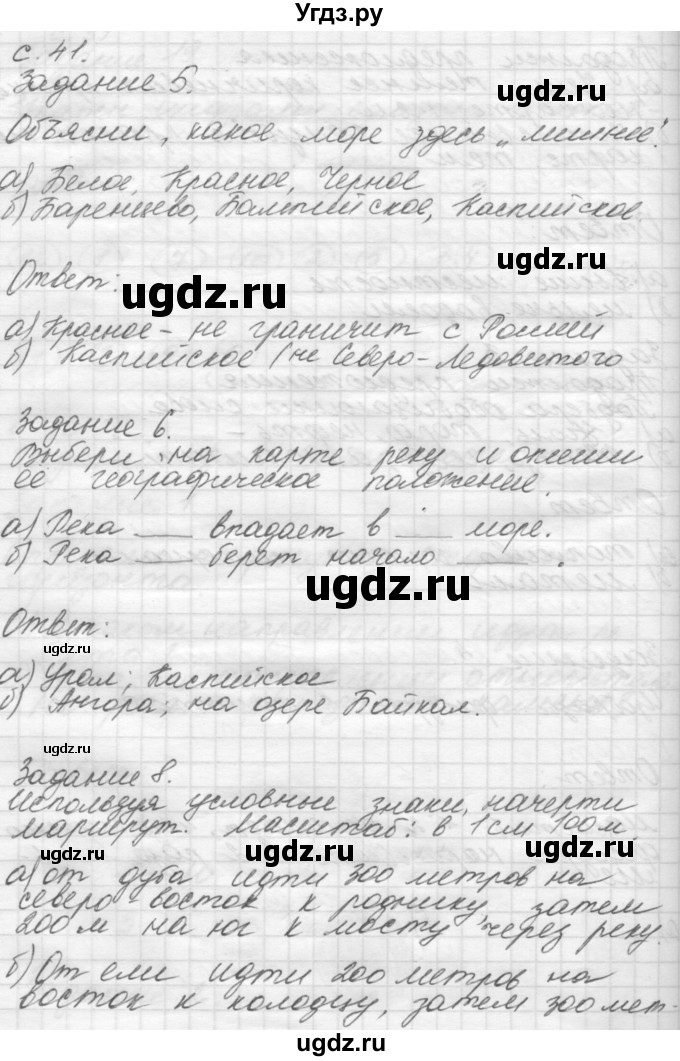 Угдз.ру
с. 41.
Задание 5.
Объясни, какое море здесь „лишнее".
а) Белое, Красное, Черное
б) Баренцево, Балтийское, Каспийское.
Ответ:
а) Красное - не граничит с Россией
б) Каспийское (не Северо-Ледовитого
Задание 6.
Выбери на карте реку и опиши
её географическое положение.
а) Река ___ впадает в ___ море.
б) Река ___ берет начало ___.
Ответ:
а) Урал; Каспийское
б) Ангара; на озере Байкал.
Задание 8.
Используя условные знаки, начерти
маршрут. Масштаб: в 1 см 100 м
а) от дуба идти 300 метров на
северо-восток к роднику, затем
200 м на юг к мосту через реку.
б) От ели идти 200 метров на
восток к колодцу, затем 300 мет-
ugdz.ru
ugdz.ru
ugdz.ru
ugdz.ru
ugdz.ru
ugdz.ru
ugdz.ru
ugdz.ru
ugdz.ru
ugdz.ru
ugdz.ru